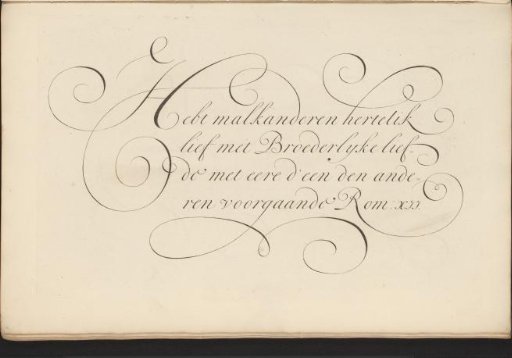 Hebt malkanderen hertelik
lief met Broederlyke lief-
de met eere d'een den ande-
ren voorgaande Rom XII